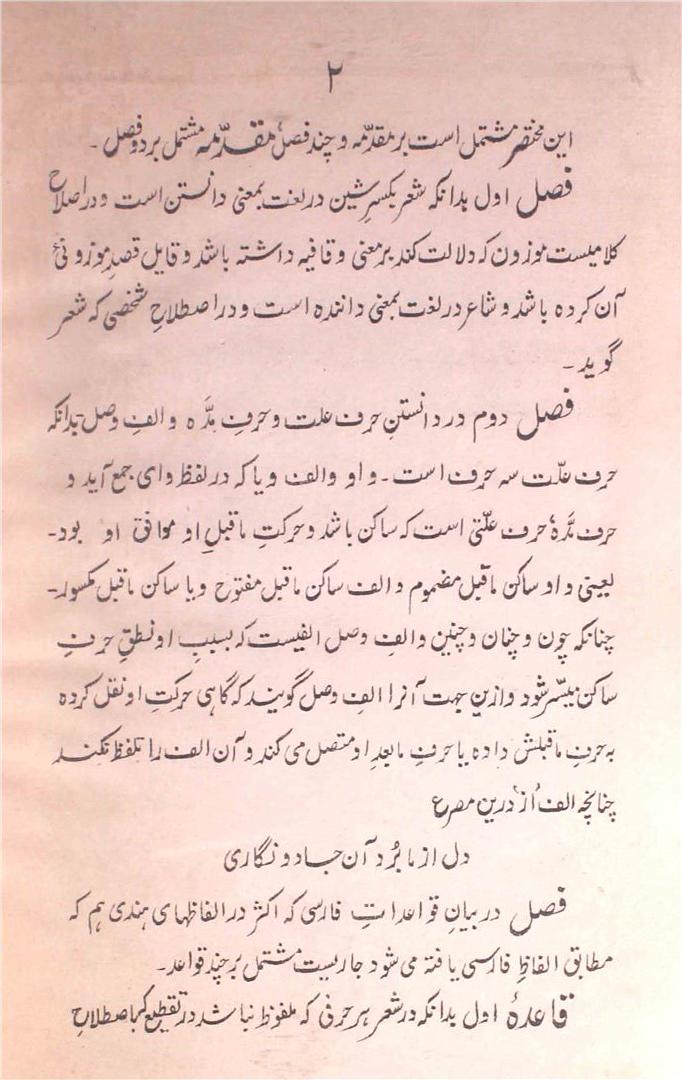 ۲
این مختصر مشتمل است بر مقدّمه و چند فصل مقدّمه مشتمل بر دو فصل ۔
فصل اول بدانکہ شعر بکسرِ شین در لغت بمعنی دانستن است و در اصلاح
کلامیست موزون کہ دلالت کند بر معنی و قافیہ داشتہ باشد و قایل قصدِ موزونئ
آن کردہ باشد و شاعر در لغت بمعنی دانندہ است و در اصطلاحِ شخصی کہ شعر
گوید ۔
فصل دوم در دانستنِ حرف علت و حرفِ مدَّہ و الفِ وصل بدانکہ
حرف علّت سہ حرف است ۔ واو والف و یا کہ در لفظ وای جمع آید و
حرف مدَّہ حرف علّتی است کہ ساکن باشد و حرکتِ ماقبلِ او موافق او بود۔
لیعنی واو ساکن ماقبل مضموم و الف ساکن ماقبل مفتوح و یا ساکن ماقبل مکسور۔
چنانکہ چون و چنان و چنین و الفِ وصل الفیست کہ بسببِ او نطقِ حرفِ
ساکن میسّر شود و ازین جہت آنرا الفِ وصل گویند کہ گاہی حرکتِ او نقل کردہ
بہ حرفِ ماقبلش دادہ یا حرفِ مابعدِ او متصل می کند و آن الف را تلفظ نکند
چنانچہ الف اُز درین مصرع
دل از ما بُرد آن جادو نگاری
فصل در بیانِ قواعداتِ فارسی کہ اکثر در الفاظہای ہندی ہم کہ
مطابق الفاظِ فارسی یافتہ می شود جاریست مشتمل بر چند قواعد۔
قاعدۂ اول بدانکہ در شعر ہر حرفی کہ ملفوظ نباشد در تقطیع کہ باصطلاحِ